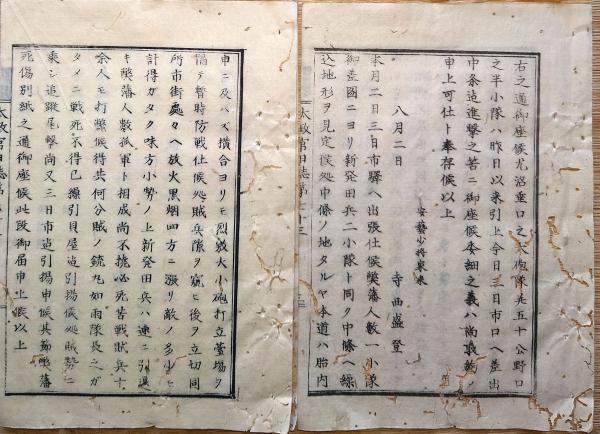 右之通御座候尤沼垂口之大砲隊兵五十公野口
之半小隊ハ昨日以来引上今日三日市口ヘ差出
中条迄進撃之苦ニ御座候委細之義ハ尚敢敢ゟ
申上可仕ト奉存候以上
安藝少将家来
八月二日 寺西盛登
本月二日三日市驛ヘ出張仕候弊藩人数一小隊
御差圖ニヨリ新発田兵二小隊ト同ク中條ヘ繰
込地形ヲ見定候処中條ノ地タルヤ本道ハ胎内
太政官日誌第七十三
申ニ及ハス横合ヨリモ烈敷大小砲打立萱場ヲ
隔テ暫時防戦仕候処賊兵隙ヲ窺ヒ後ヲ立切同
所市街處々ヘ放火黒烟四方ニ漲リ敵ノ多少モ
計得カタク味方小勢ノ上新発田兵ハ速ニ引退
キ弊藩人数孤軍ト相成尚不撓必死苦戦賊兵十
余人モ打斃候得共何分賊ノ銃丸如雨隊長之カ
タメニ戦死不得已繰引貝屋迄引揚候処賊勢ニ
乗シ追蹤尾撃尚又三日市迄引揚申候其節弊藩
死傷別紙之通御座候此段御届申上候以上
太政官日誌第